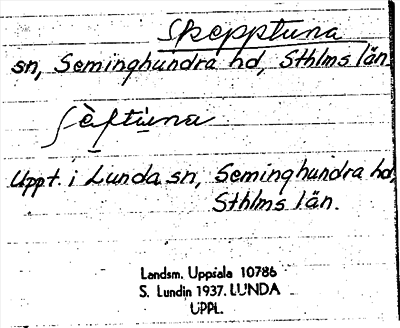 Skepptuna
sn, Seminghundra hd, Sthlms län
Uppt. i Lunda sn, Seminghundra hd,
Sthlms län.
Landsm. Uppsala 10786
S. Lundin 1937. LUNDA
UPPL.